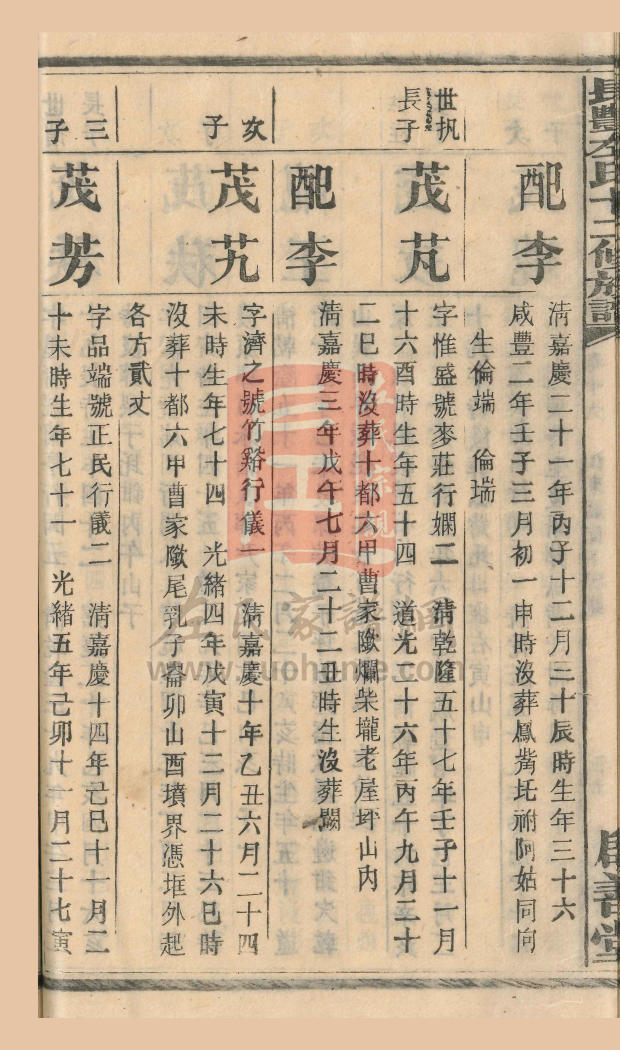 長豐左氏十二修族譜
善堂
配李
清嘉慶二十一年丙子十二月三十辰時生年三十六
咸豐二年壬子三月初一申時沒葬鳳觜圫祔阿姑同向
生倫端 倫瑞
世扒
長子
茂芃
字惟盛號麥莊行嫻二 清乾隆五十七年壬子十一月
十六酉時生年五十四 道光二十六年丙午九月二十
二巳時沒葬十都六甲曹家隞爛柴壠老屋坪山內
配李
清嘉慶三年戊午七月二十二丑時生沒葬闕
次子
茂艽
字濟之號竹谿行儀一 清嘉慶十年乙丑六月二十四
未時生年七十四 光緒四年戊寅十二月二十六巳時
沒葬十都六甲曹家隞尾乳子崙卯山酉墳界憑堆外起
各方貳丈
三子
茂芳
字品端號正民行儀二 清嘉慶十四年己巳十一月二
十未時生年七十一 光緒五年己卯十一月二十七寅
左氏家譜網